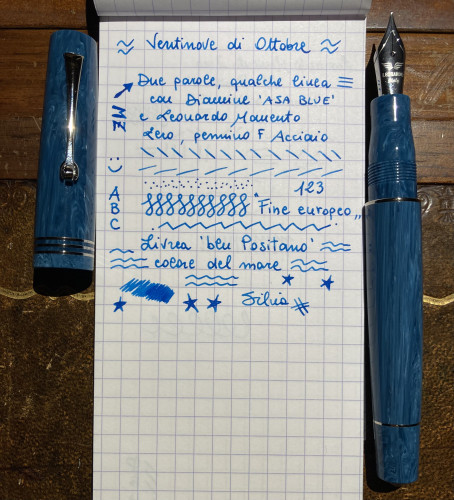 Ventinove di Ottobre
Due parole, qualche linea
con Diamine 'ASA BLUE'
e Leonardo Momento
Zero, pennino F Acciaio
:)
123
A
B
C
"Fine europeo"
Livrea 'blu Positano'
colore del mare
Silvia
LEONARDO